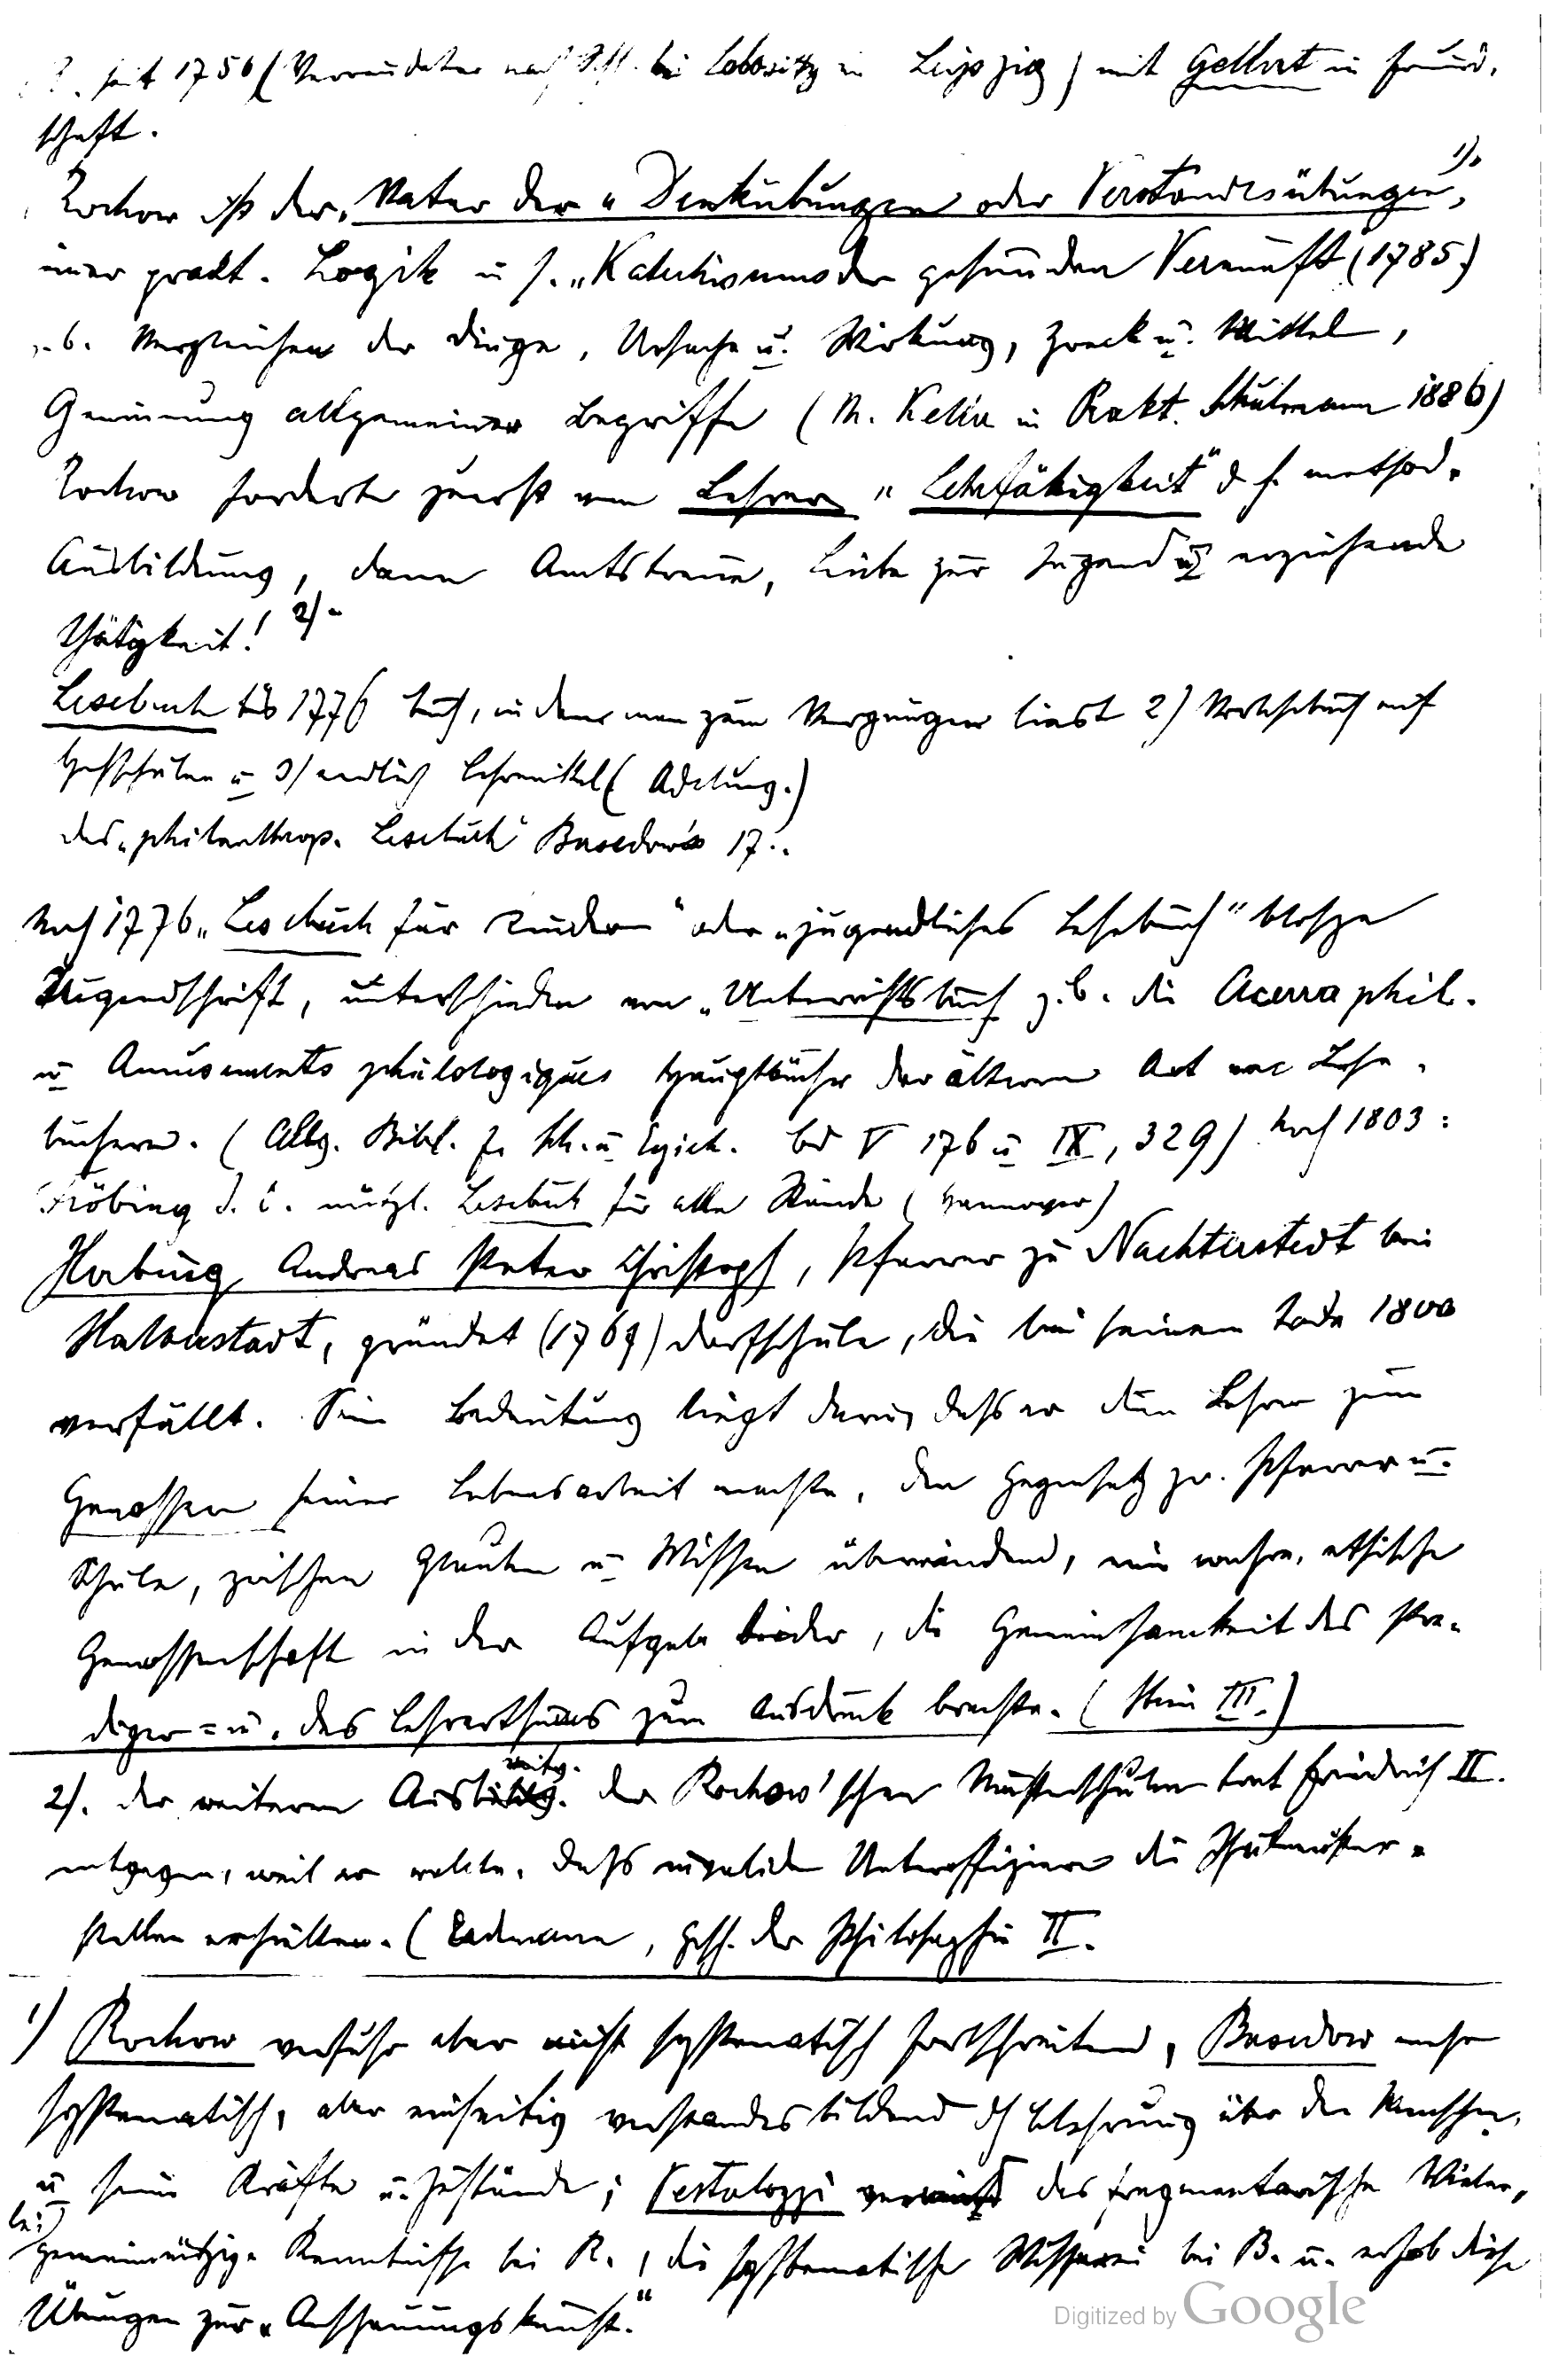 seit 1756 (Verwundeter nach bei Lobositz in Leipzig) mit Gellert in Freund-
schaft.
Rochow ist der „Vater der „Denkübungen oder Verstandesübungen", 1).
einer prakt. Logik u s. „Katechismus der gesunden Vernunft (1785)
z. b. Vergleichen der Dinge, Ursache u. Wirkung, Zweck u. Mittel,
Gewinnung allgemeiner Begriffe (M. in Prakt. Schulmann 1886)
Rochow forderte zuerst vom Lehrer „Lehrfähigkeit" d h. method.
Ausbildung, dann Amtstreue, Liebe zur Jugend u erziehende
Thätigkeit! 2)
Lesebuch bis 1776 Buch, in dem man zum Vergnügen liest 2) auf
Hofschulen u 3) endlich Lehrmittel (Adelung.)
das „philanthrop. Lesebuch" Basedow's 17..
Noch 1776 „Lesebuch für Kinder" oder „jugendliches Lesebuch" blosze
Jugendschrift, unterschieden von „Unterrichtsbuch z. b. die Acerra phil.
u Amusements philologiques Hauptbücher der älteren Art von Lese-
büchern. (Allg. Bibl. f. Sch. u Erzieh. bd V 176 u IX, 329) Noch 1803:
Fröbing J. C. nützl. Lesebuch für alle Stände (Hannover)
Herbing, Andreas Peter Christoph, Pfarrer zu Nachterstedt bei
Halberstadt, gründet (1764) Dorfschule, die bei seinem Tode 1800
verfällt. Seine Bedeutung liegt darin, dass er den Lehrer zum
Genossen seiner Lebensarbeit machte, den Gegensatz zw. Pfarrer u.
Schule, zwischen Glauben u Wissen überwindend, eine wahre, ethische
Genossenschaft in der Aufgabe beider, die Gemeinsamkeit des Pre-
diger= u. des Lehrerthums zum Ausdruck brachte. (Stein III.)
2). der weiteren Ausbreitg. der Rochow'schen Musterschulen trat Friedrich II.
entgegen, weil er wollte, dass invalide Unteroffiziere die Schulmeister-
stellen erhielten. (Erdmann, Gesch. der Philosophie II.
1) Rochow verfuhr aber nicht systematisch fortschreitend, Basedow mehr
systematisch, aber einseitig verstandesbildend dch Belehrung über den Menschen,
u seine Kräfte u. Zustände; Pestalozzi vereinigt das fragmentarische Vieler-
lei
gemeinnützige Kenntnisse bei R., die systematische Wisserei bei B. u. erhob diese
Übungen zur „Anschauungskunst."
Digitized by Google